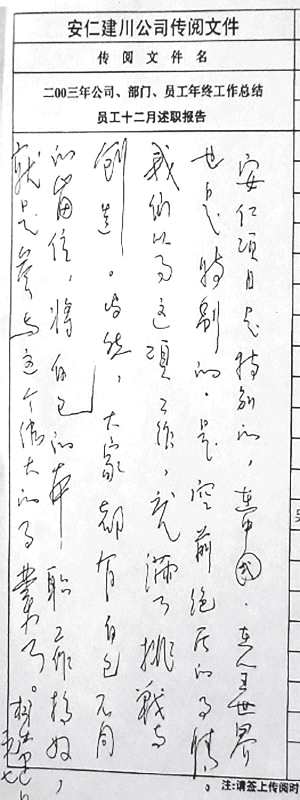 安仁建川公司传阅文件
传阅文件名
二00三年公司、部门、员工年终工作总结
员工十二月述职报告
安仁项目是特别的，在中国·在全世界
也是特别的。是空前绝后的事情。
我们从事这项工作，充满了挑战与
创造。当然，大家都有自己不同
的岗位，将自己的本职工作搞好，
就是参与这个伟大的事业了。
注:请签上传阅时